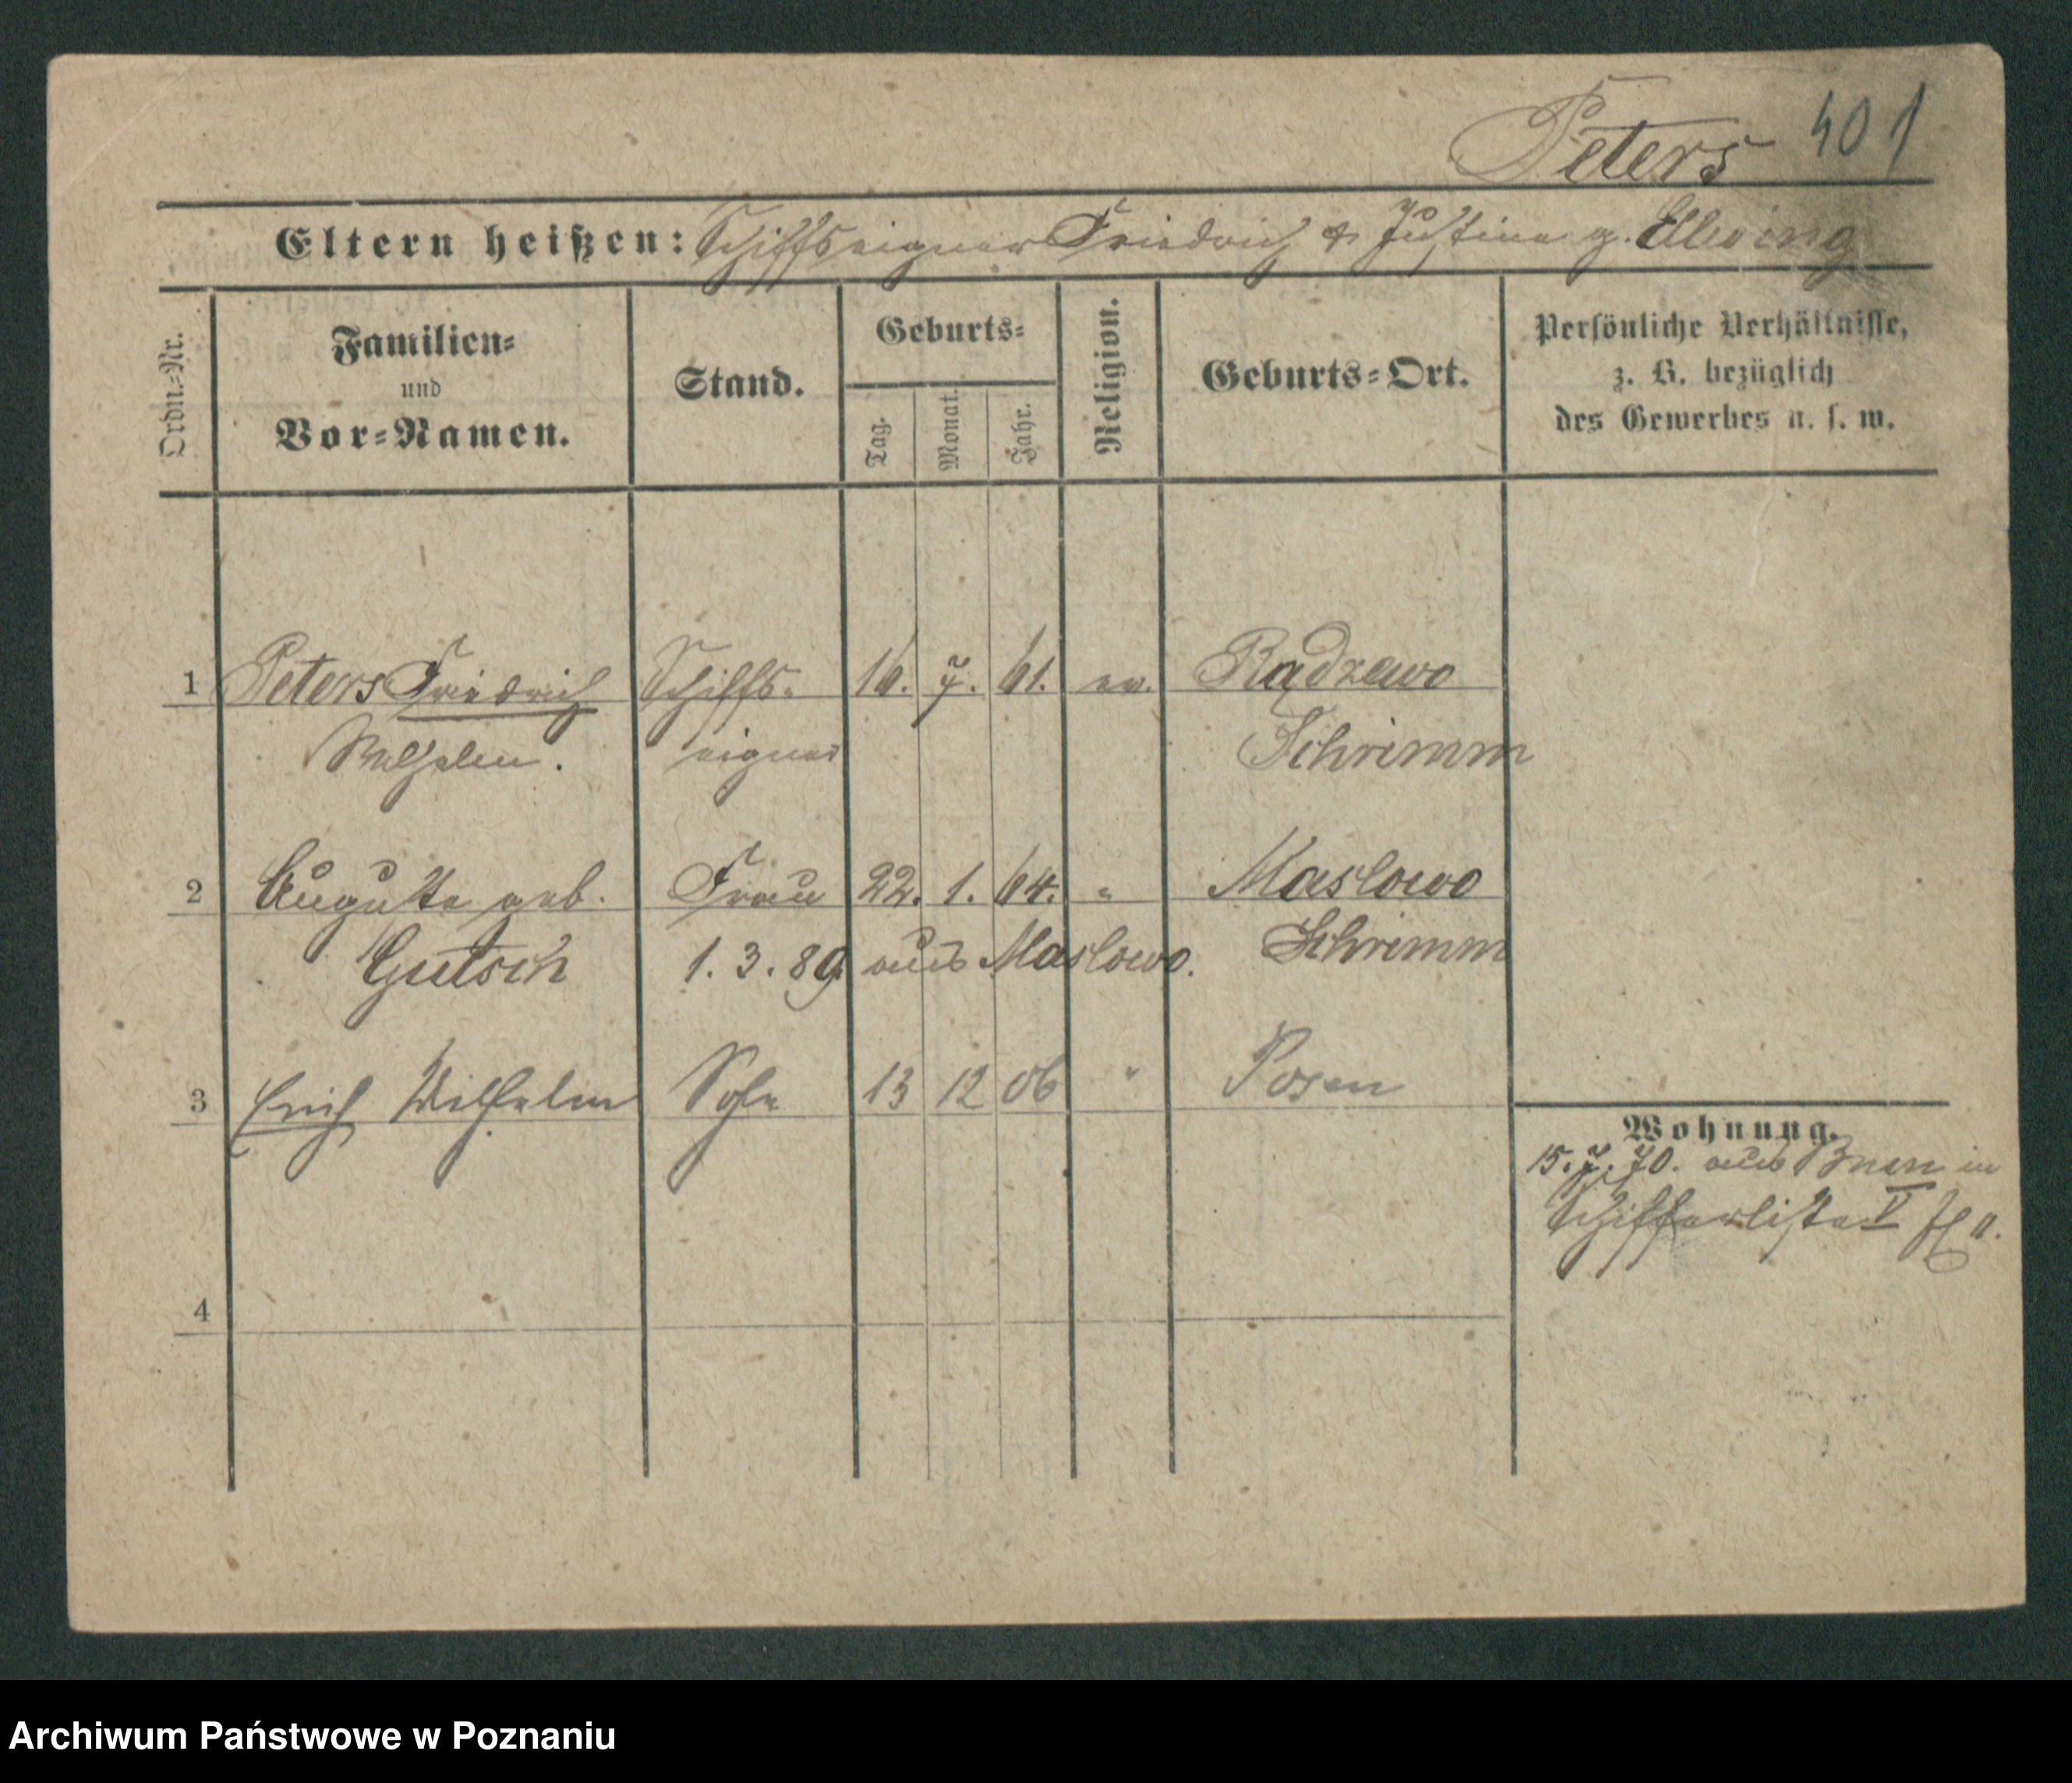 Peters 401
Eltern heißen: Schiffseigner Friedrich & Justine g. Ellwing
Ordn.=Nr.
Familien=
und
Vor=Namen.
Stand.
Geburts=
Tag.
Monat.
Jahr.
Religion.
Geburts=Ort.
Persönliche Verhältnisse,
z. B. bezüglich
des Gewerbes u. s. w.
1 Peters Friedrich Schiffs. 16. 7. 61. ev. Radzewo
Wilhelm. eigner Schrimm
2 Auguste geb. Frau 22. 1. 64. " Maslowo
Gutsch 1. 3. 89. aus Maslowo. Schrimm
3 Erich Wilhelm Sohn 13 12 06 " Posen
Wohnung.
15. 7. 70. aus Bnin in
Schifferliste V
4
Archiwum Państwowe w Poznaniu